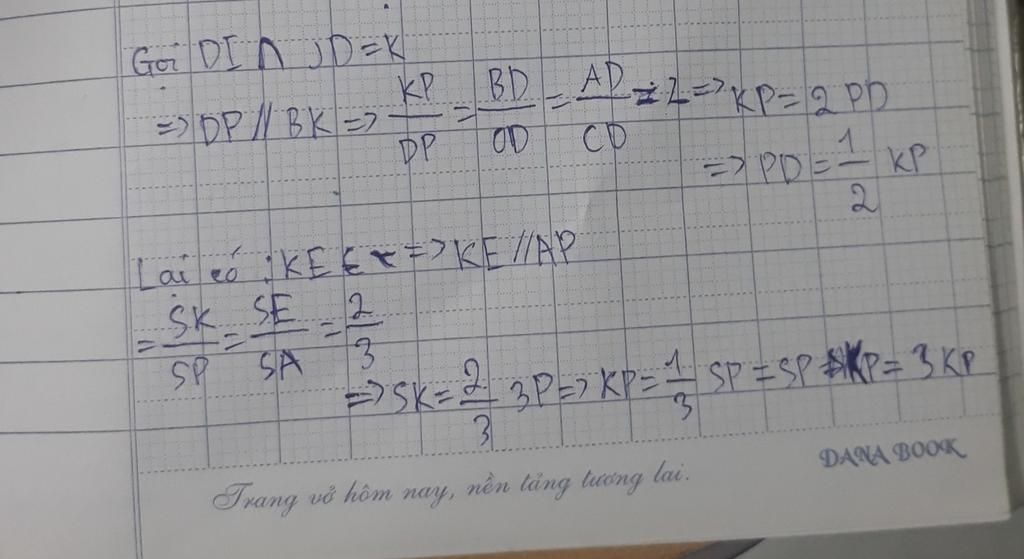 Gọi DI ∩ JD = K
=> DP // BK => KP/DP = BD/OD = AD/CD = 2 => KP = 2 PD
=> PD = 1/2 KP
Lại có : KE € => KE // AP
= SK/SP = SE/SA = 2/3
=> SK = 2/3 3P => KP = 1/3 SP = SP KP = 3 KP
DANA BOOK
Trang vở hôm nay, nền tảng tương lai.